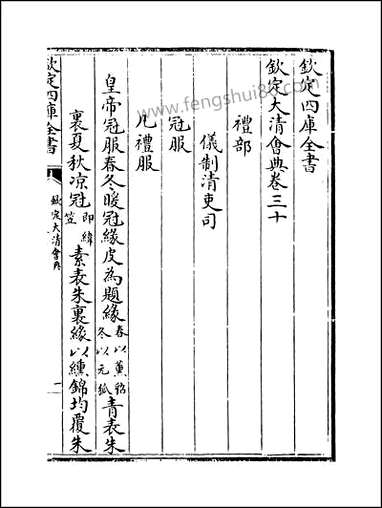 欽定四庫全書
欽定大清會典卷三十
禮部
儀制清吏司
冠服
凡禮服
皇帝冠服春冬暖冠緣皮為題緣春以薰貂冬以元狐青表朱
裏夏秋凉冠即緯笠素表朱裏緣以纁錦均覆朱
欽定四庫全書
欽定大清會典
一
www.fengshui86.com